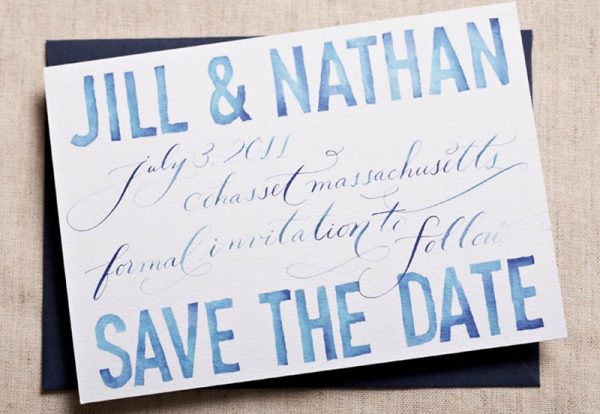 JILL & NATHAN
july 3, 2011
cohasset massachusetts
formal invitation to follow
SAVE THE DATE